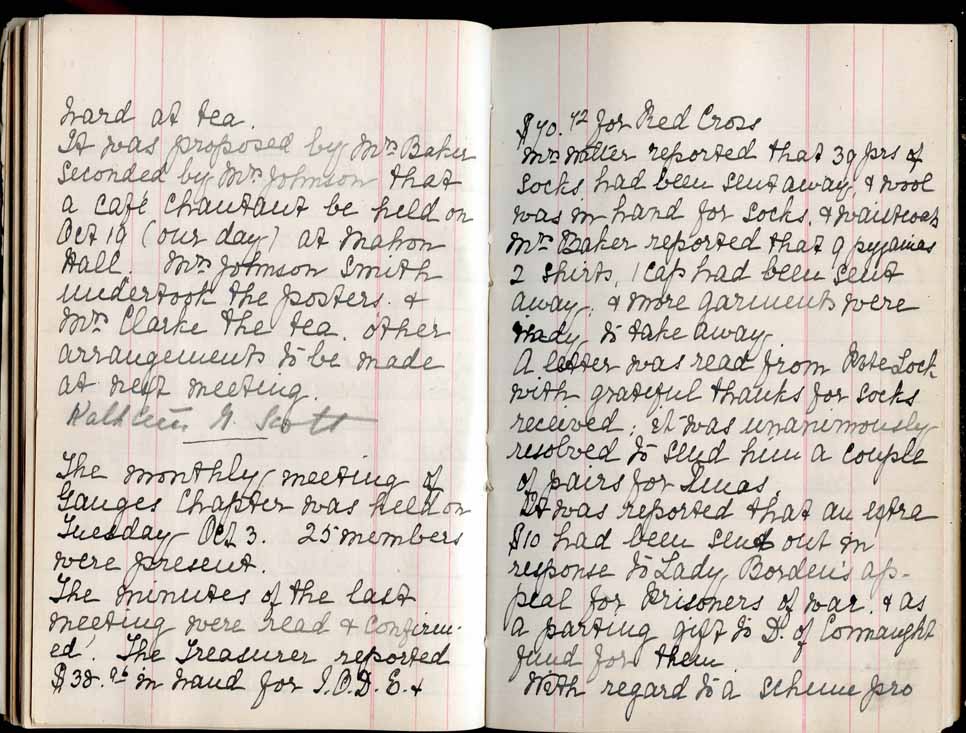 ward at tea.
It was proposed by Mrs Baker
Seconded by Mrs Johnson that
a café chantant be held on
Oct 19 (our day) at Mahon
Hall. Mrs Johnson Smith
undertook the posters. &
Mrs Clarke the tea. other
arrangements to be made
at next meeting.
Kathleen Scott
The monthly meeting of
Ganges Chapter was held on
Tuesday Oct 3. 25 members
were present.
The minutes of the last
meeting were read & confirm-
ed. The Treasurer reported
in hand for I.O.D.E. &
for Red Cross
Mrs Walter reported that 39 prs of
socks had been sent away & wool
was in hand for socks. & waistcoats
Mrs Baker reported that 9 pyjamas
2 shirts, 1 cap had been sent
away. & more garments were
ready to take away.
A letter was read from Pote Lock
with grateful thanks for socks
received; it was unanimously
resolved to send him a couple
of pairs for Xmas.
It was reported that an extra
$10 had been sent out in
response to Lady Borden's ap-
peal for Prisoners of war. & as
a parting gift to D. of Connaught
fund for them.
With regard to a scheme pro